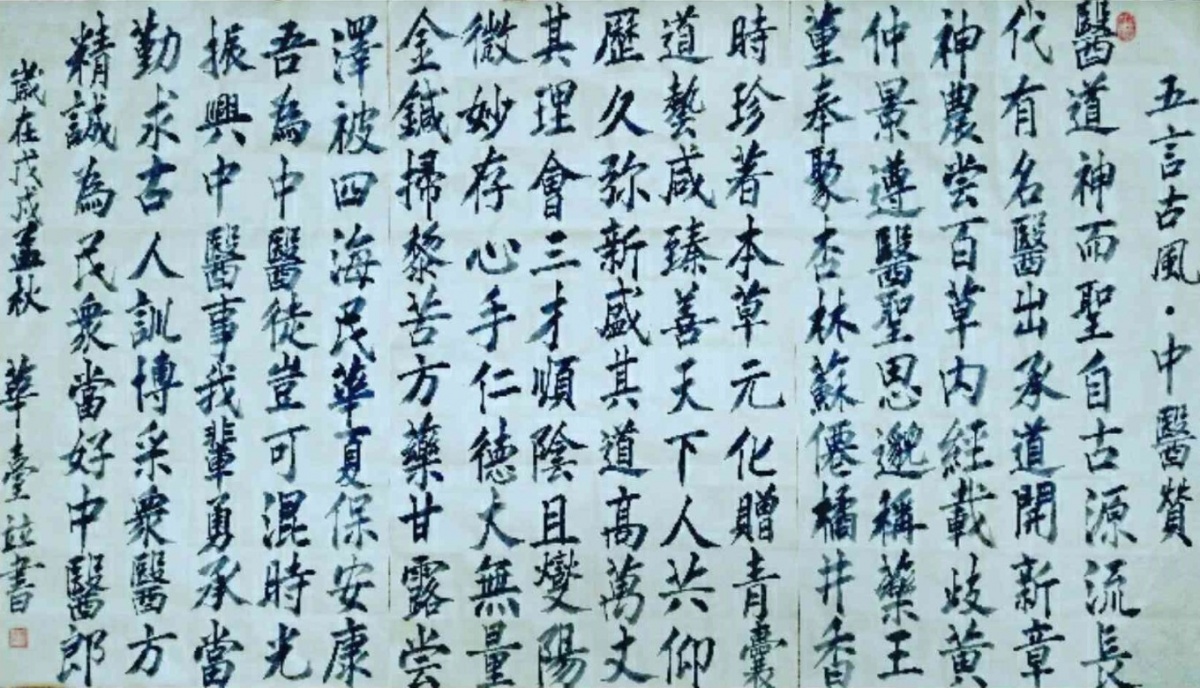 五言古風·中醫贊
醫道神而聖自古源流長
代有名醫出承道開新章
神農尝百草内經載歧黃
仲景遵醫聖思邈稱藥王
董奉聚杏林蘇僊橘井香
時珍著本草元化贈青囊
道藝咸臻善天下人共仰
歷久弥新盛其道高萬丈
其理會三才順陰且燮陽
微妙存心手仁德大無量
金鍼掃黎苦方藥甘露尝
澤被四海民華夏保安康
吾為中醫徒豈可混時光
振興中醫事我輩勇承當
勤求古人訓博采衆醫方
精誠為民衆當好中醫郎
歲在戊戌孟秋 華臺並書